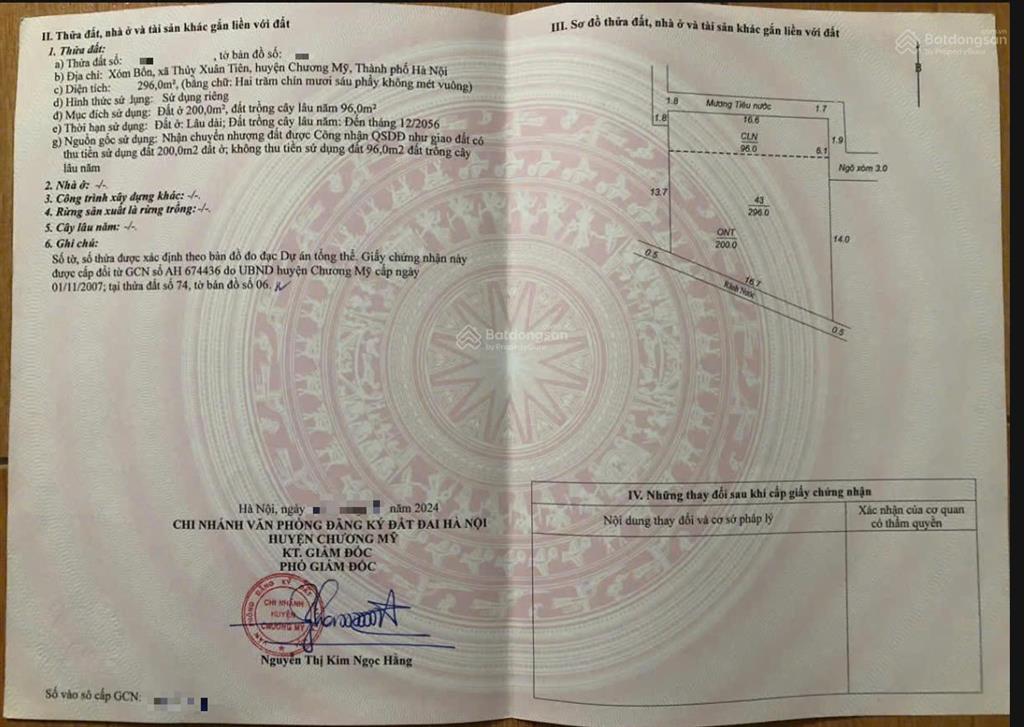 II. Thửa đất, nhà ở và tài sản khác gắn liền với đất
1. Thửa đất:
a) Thửa đất số: , tờ bản đồ số:
b) Địa chỉ: Xóm Bốn, xã Thủy Xuân Tiên, huyện Chương Mỹ, Thành phố Hà Nội
c) Diện tích: 296,0m², (bằng chữ: Hai trăm chín mươi sáu phẩy không mét vuông)
d) Hình thức sử dụng: Sử dụng riêng
đ) Mục đích sử dụng: Đất ở 200,0m², đất trồng cây lâu năm 96,0m²
e) Thời hạn sử dụng: Đất ở: Lâu dài; Đất trồng cây lâu năm: Đến tháng 12/2056
g) Nguồn gốc sử dụng: Nhận chuyển nhượng đất được Công nhận QSDĐ như giao đất có
thu tiền sử dụng đất 200,0m2 đất ở; không thu tiền sử dụng đất 96,0m2 đất trồng cây
lâu năm
2. Nhà ở: -/-.
3. Công trình xây dựng khác: -/-.
4. Rừng sản xuất là rừng trồng: -/-.
5. Cây lâu năm: -/-.
6. Ghi chú:
Số tờ, số thửa được xác định theo bản đồ đo đạc Dự án tổng thể. Giấy chứng nhận này
được cấp đổi từ GCN số AH 674436 do UBND huyện Chương Mỹ cấp ngày
01/11/2007; tại thửa đất số 74, tờ bản đồ số 06.
Hà Nội, ngày năm 2024
CHI NHÁNH VĂN PHÒNG ĐĂNG KÝ ĐẤT ĐAI HÀ NỘI
HUYỆN CHƯƠNG MỸ
KT. GIÁM ĐỐC
PHÓ GIÁM ĐỐC
VĂN PHÒNG ĐĂNG KÝ ĐẤT
CHI NHÁNH
HUYỆN
CHƯƠNG MỸ
Nguyễn Thị Kim Ngọc Hằng
Số vào sổ cấp GCN:
III. Sơ đồ thửa đất, nhà ở và tài sản khác gắn liền với đất
B
1.8
Mương Tiêu nước
1.7
1.8
16.6
CLN
96.0
6.1
1.9
Ngõ xóm 3.0
13.7
43
296.0
ONT
200.0
14.0
0.5
16.7
Rãnh Nước
0.5
IV. Những thay đổi sau khi cấp giấy chứng nhận
Nội dung thay đổi và cơ sở pháp lý
Xác nhận của cơ quan
có thẩm quyền
Batdongsan
by PropertyGuru
Batdongsan
by PropertyGuru